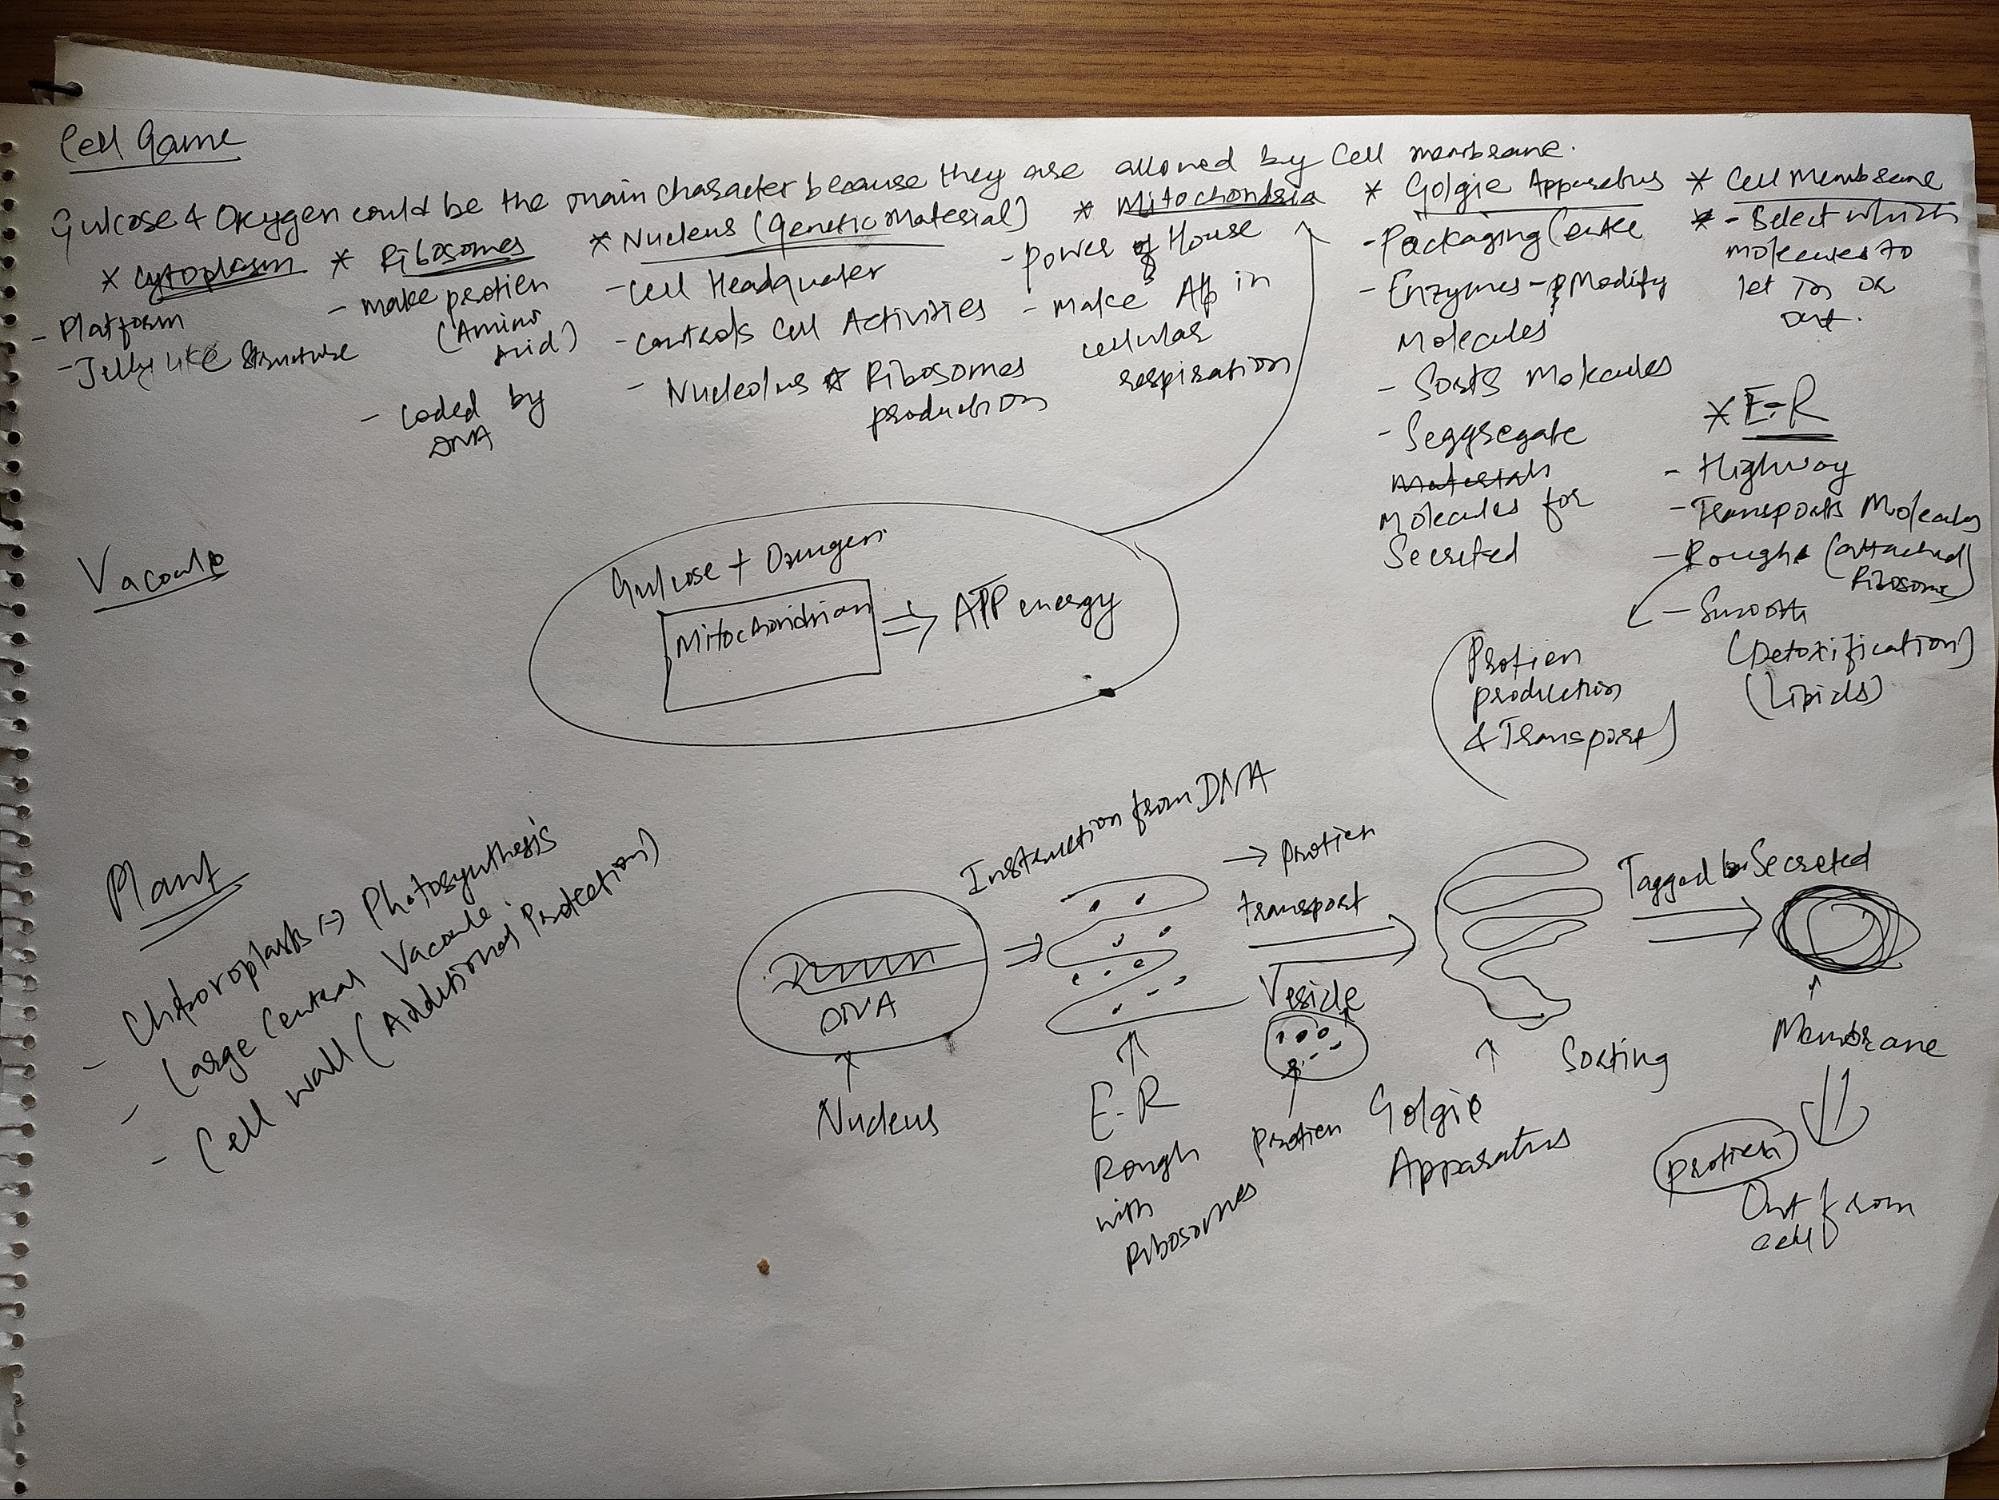 Cell Game
Gulcose & Oxygen could be the main character because they are allowed by Cell membrane.
* Cytoplasm
- Platform
- Jelly like structure
* Ribosomes
- make protien
(Amino
Acid)
- Coded by
DNA
* Nucleus (Genetic Material)
- Cell Headquater
- Controls Cell Activities
- Nucleolus * Ribosomes
production
* Mitochondria
- Power of House
- Make in
cellular
respiration
* Golgie Apparatus
- Packaging
- Enzymes - Modify
Molecules
- Sorts Molecules
- Seggregate
Materials
Molecules for
Secreted
* Cell Membrane
* - Select which
molecules to
let In or
out.
* E-R
- Highway
- Transports
- Rough (attached
Ribosome)
- Smooth
(Detoxification)
(Lipids)
Protien
production
& Transport)
Vacoule
Gulcose + Oxygen
Mitochondrian ⇒ ATP energy
Plant
- Photosynthesis
- Large Central Vacoule.
- Cell wall (Additional Protection)
Instruction from DNA
DNA
Nucleus
E-R
Rough
with
Ribosomes
→ Protien
transport
Vesicle
Protien
Golgie
Apparatus
Sorting
Tagged Secreted
Membrane
Protien
Out from
cell